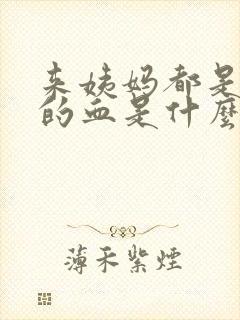 来姨妈都是
的血是什麼
薄禾紫煙